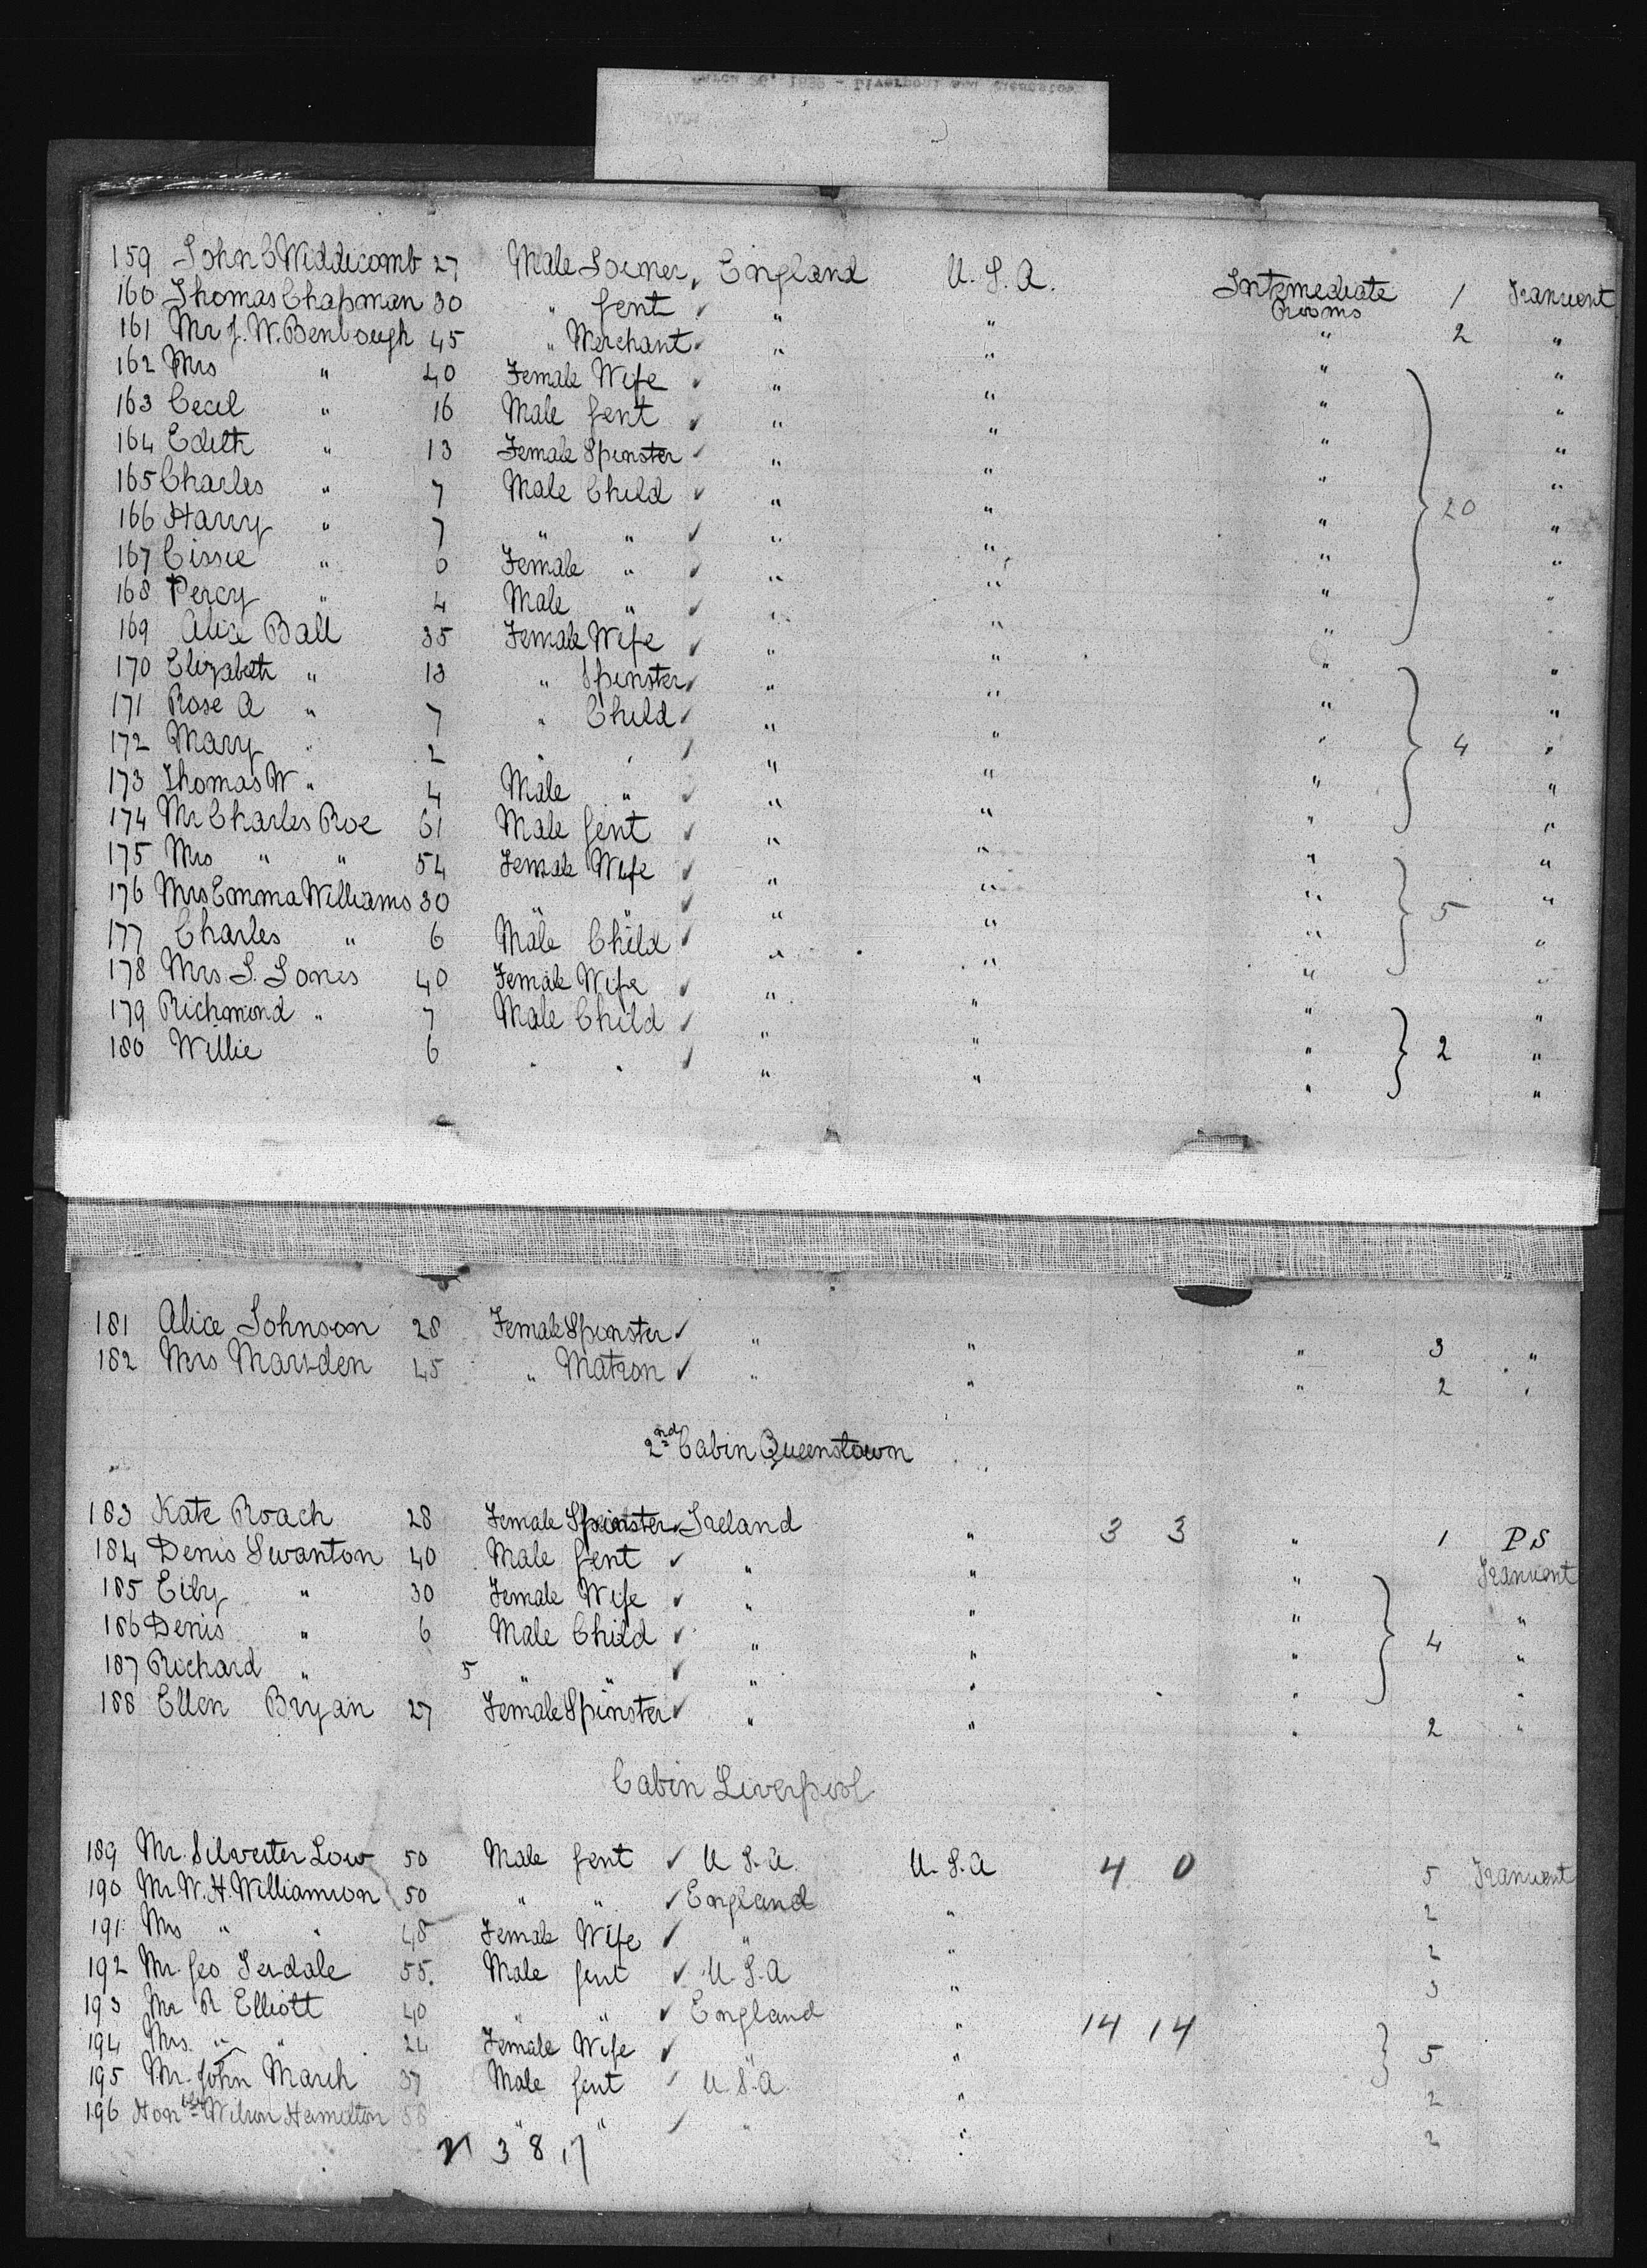 159 John C Widdicomb 27 Male Joiner England U.S.A. Intemediate Rooms 1 Transient
160 Thomas Chapman 30 " Gent " " " 2 "
161 Mr J. W. Benbough 45 " Merchant " " " "
162 Mrs " 40 Female Wife " " " "
163 Cecil " 16 Male Gent " " " "
164 Edith " 13 Female Spinster " " " "
165 Charles " 7 Male Child " " " 20 "
166 Harry " 7 " " " " " "
167 Cissie " 6 Female " " " " "
168 Percy " 4 Male " " " " "
169 Alice Ball 35 Female Wife " " " "
170 Elizabeth " 13 " Spinster " " " "
171 Rose A " 7 " Child " " " "
172 Mary " 2 " " " " " 4 "
173 Thomas W " 4 Male " " " " "
174 Mr Charles Roe 61 Male Gent " " " "
175 Mrs " " 54 Female Wife " " " "
176 Mrs Emma Williams 30 " " " " " 5 "
177 Charles " 6 Male Child " " " "
178 Mrs J. Jones 40 Female Wife " " " "
179 Richmond " 7 Male Child " " " 2 "
180 Willie 6 " " " " " "
181 Alice Johnson 28 Female Spinster " " " 3 "
182 Mrs Marsden 45 " Matron " " " 2 "
2nd Cabin Queenstown
183 Kate Roach 28 Female Spinster Ireland " 3 3 " 1 PS
184 Denis Swanton 40 Male Gent " " " Transient
185 Eily " 30 Female Wife " " " "
186 Denis " 6 Male Child " " " 4 "
187 Richard " 5 " " " " " "
188 Ellen Bryan 27 Female Spinster " " " 2 "
Cabin Liverpool
189 Mr. Silvester Low 50 Male Gent U.S.A. U.S.A 4 0 5 Transient
190 Mr. W. H. Williamson 50 " " England " 2
191 Mrs " " 48 Female Wife " " 2
192 Mr. Geo 55. Male Gent U.S.A " 3
193 Mr R Elliott 40 " " England " 14 14
194 Mrs. " " 24 Female Wife " " 5
195 Mr. John March 37 Male Gent U.S.A. " 2
196 Honble Wilson Hamilton 58 " " " " 2
3 8 17